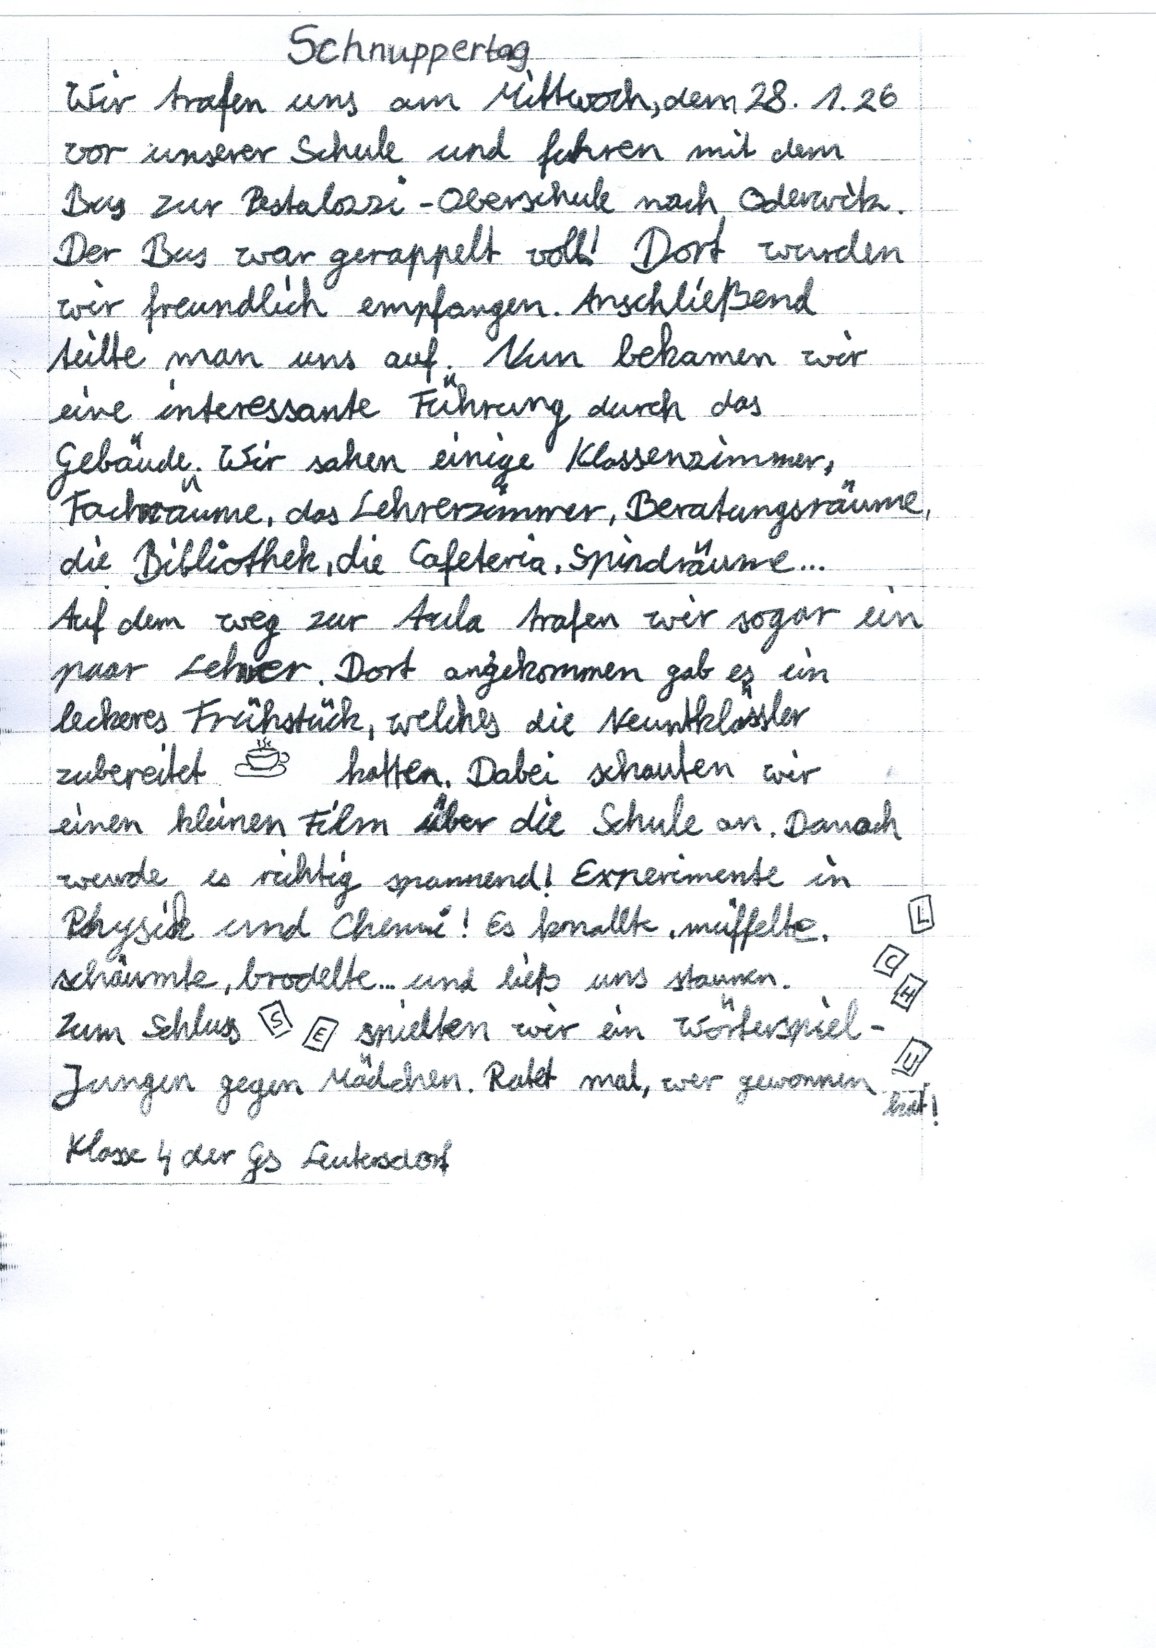 Schnuppertag
Wir trafen uns am Mittwoch, dem 28. 1. 26
vor unserer Schule und fuhren mit dem
Bus zur Pestalozzi - Oberschule nach Oderwitz.
Der Bus war gerappelt voll! Dort wurden
wir freundlich empfangen. Anschließend
teilte man uns auf. Nun bekamen wir
eine interessante Führung durch das
Gebäude. Wir sahen einige Klassenzimmer,
Fachräume, das Lehrerzimmer, Beratungsräume,
die Bibliothek, die Cafeteria, Spindräume...
Auf dem weg zur Aula trafen wir sogar ein
paar Lehrer. Dort angekommen gab es ein
leckeres Frühstück, welches die Neuntklässler
zubereitet hatten. Dabei schauten wir
einen kleinen Film über die Schule an. Danach
wurde es richtig spannend! Experimente in
Physik und Chemie! Es knallte, müffelte,
L
schäumte, brodelte... und ließ uns staunen.
C
H
Zum Schluss S E spielten wir ein Wörterspiel -
U
Jungen gegen Mädchen. Ratet mal, wer gewonnen
hat!
Klasse 4 der GS Leutersdorf